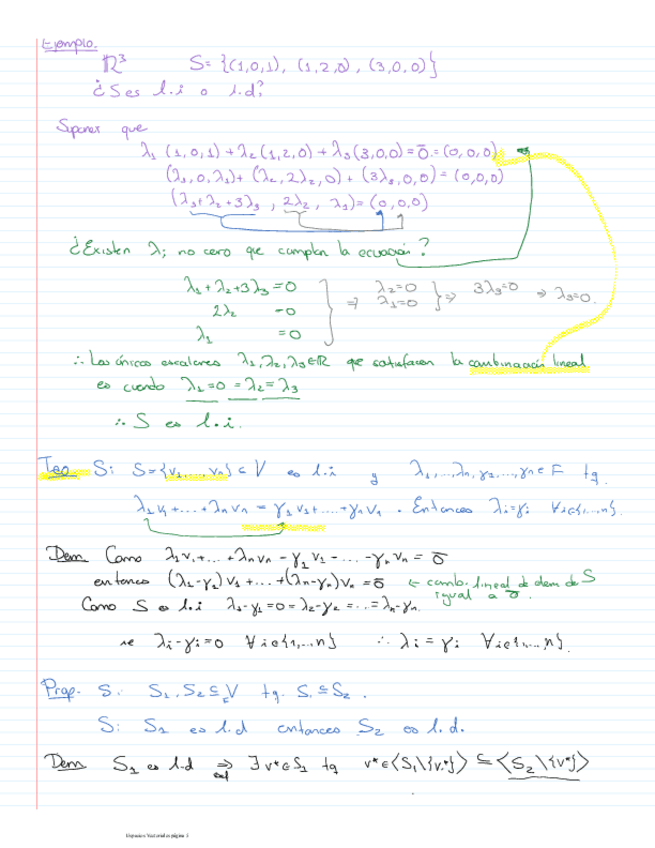 Ejemplo.
ℝ³ S = {(1,0,1), (1,2,0), (3,0,0)}
¿S es l.i o l.d?
Suponer que
λ₁ (1,0,1) + λ₂ (1,2,0) + λ₃ (3,0,0) = 0̄ = (0,0,0)
(λ₁, 0, λ₁) + (λ₂, 2λ₂, 0) + (3λ₃, 0, 0) = (0,0,0)
(λ₁+λ₂+3λ₃, 2λ₂, λ₁) = (0,0,0)
¿Existen λi no cero que cumplan la ecuación?
λ₁ + λ₂ + 3λ₃ = 0
2λ₂ = 0
λ₁ = 0
} ⇒ λ₂=0 λ₁=0 } ⇒ 3λ₃=0 ⇒ λ₃=0.
∴ Los únicos escalares λ₁, λ₂, λ₃ ∈ ℝ que satisfacen la combinación lineal
es cuando λ₁ = 0 = λ₂ = λ₃
∴ S es l.i.
Teo Si S = {v₁, ..., vₙ} ⊆ V es l.i y λ₁, ..., λₙ, γ₁, ..., γₙ ∈ F tq.
λ₁v₁ + ... + λₙvₙ = γ₁v₁ + ... + γₙvₙ. Entonces λi = γi ∀i∈{1,...,n}.
Dem Como λ₁v₁ + ... + λₙvₙ - γ₁v₁ - ... - γₙvₙ = 0̄
entonces (λ₁-γ₁)v₁ + ... + (λₙ-γₙ)vₙ = 0̄ ← comb. lineal de elem de S
igual a 0̄.
Como S es l.i λ₁-γ₁ = 0 = λ₂-γ₂ = ... = λₙ-γₙ.
ie λi - γi = 0 ∀i∈{1,...,n} ∴ λi = γi ∀i∈{1,...,n}.
Prop. Si S₁, S₂ ⊆ V tq. S₁ ⊆ S₂.
Si S₁ es l.d entonces S₂ es l.d.
Dem S₁ es l.d ⇒ ∃ v* ∈ S₁ tq v* ∈ ⟨S₁\{v*}⟩ ⊆ ⟨S₂\{v*}⟩
Espacios Vectoriales página 1